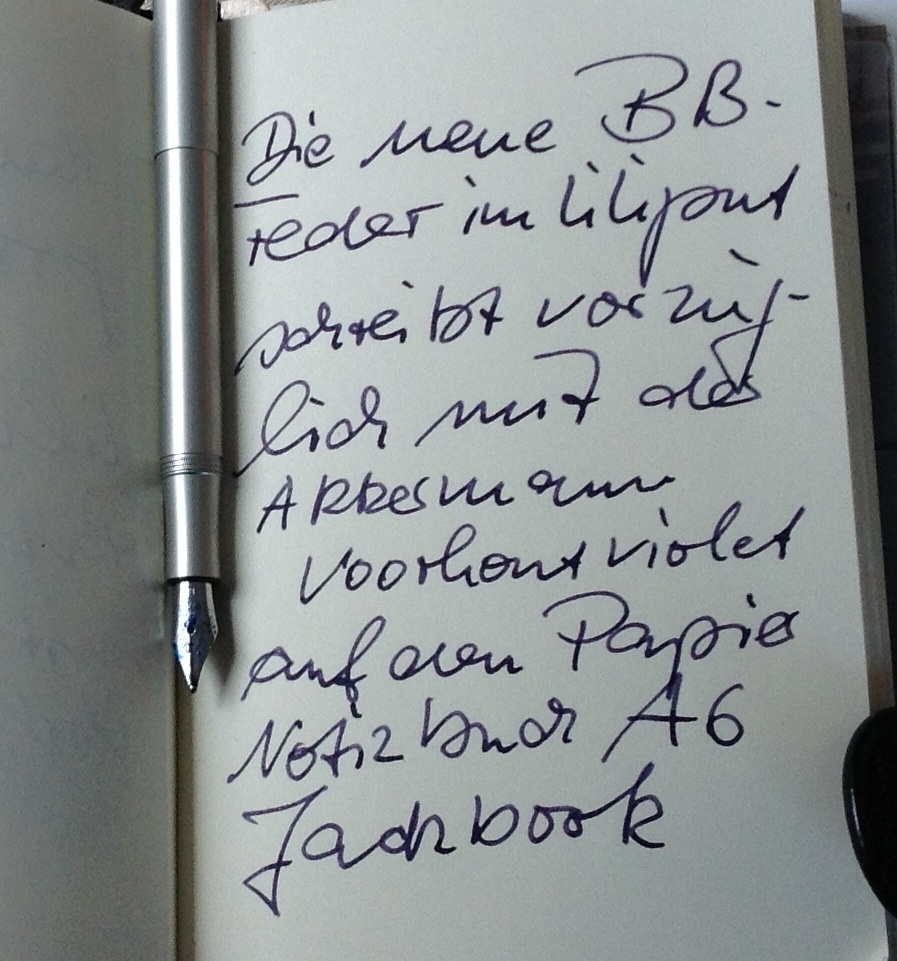 Die neue BB-
Feder im Liliput
schreibt vorzüg-
lich mit der
Akkermann
Voorhout violet
auf den Papier
Notizbuch A6
Jachbook